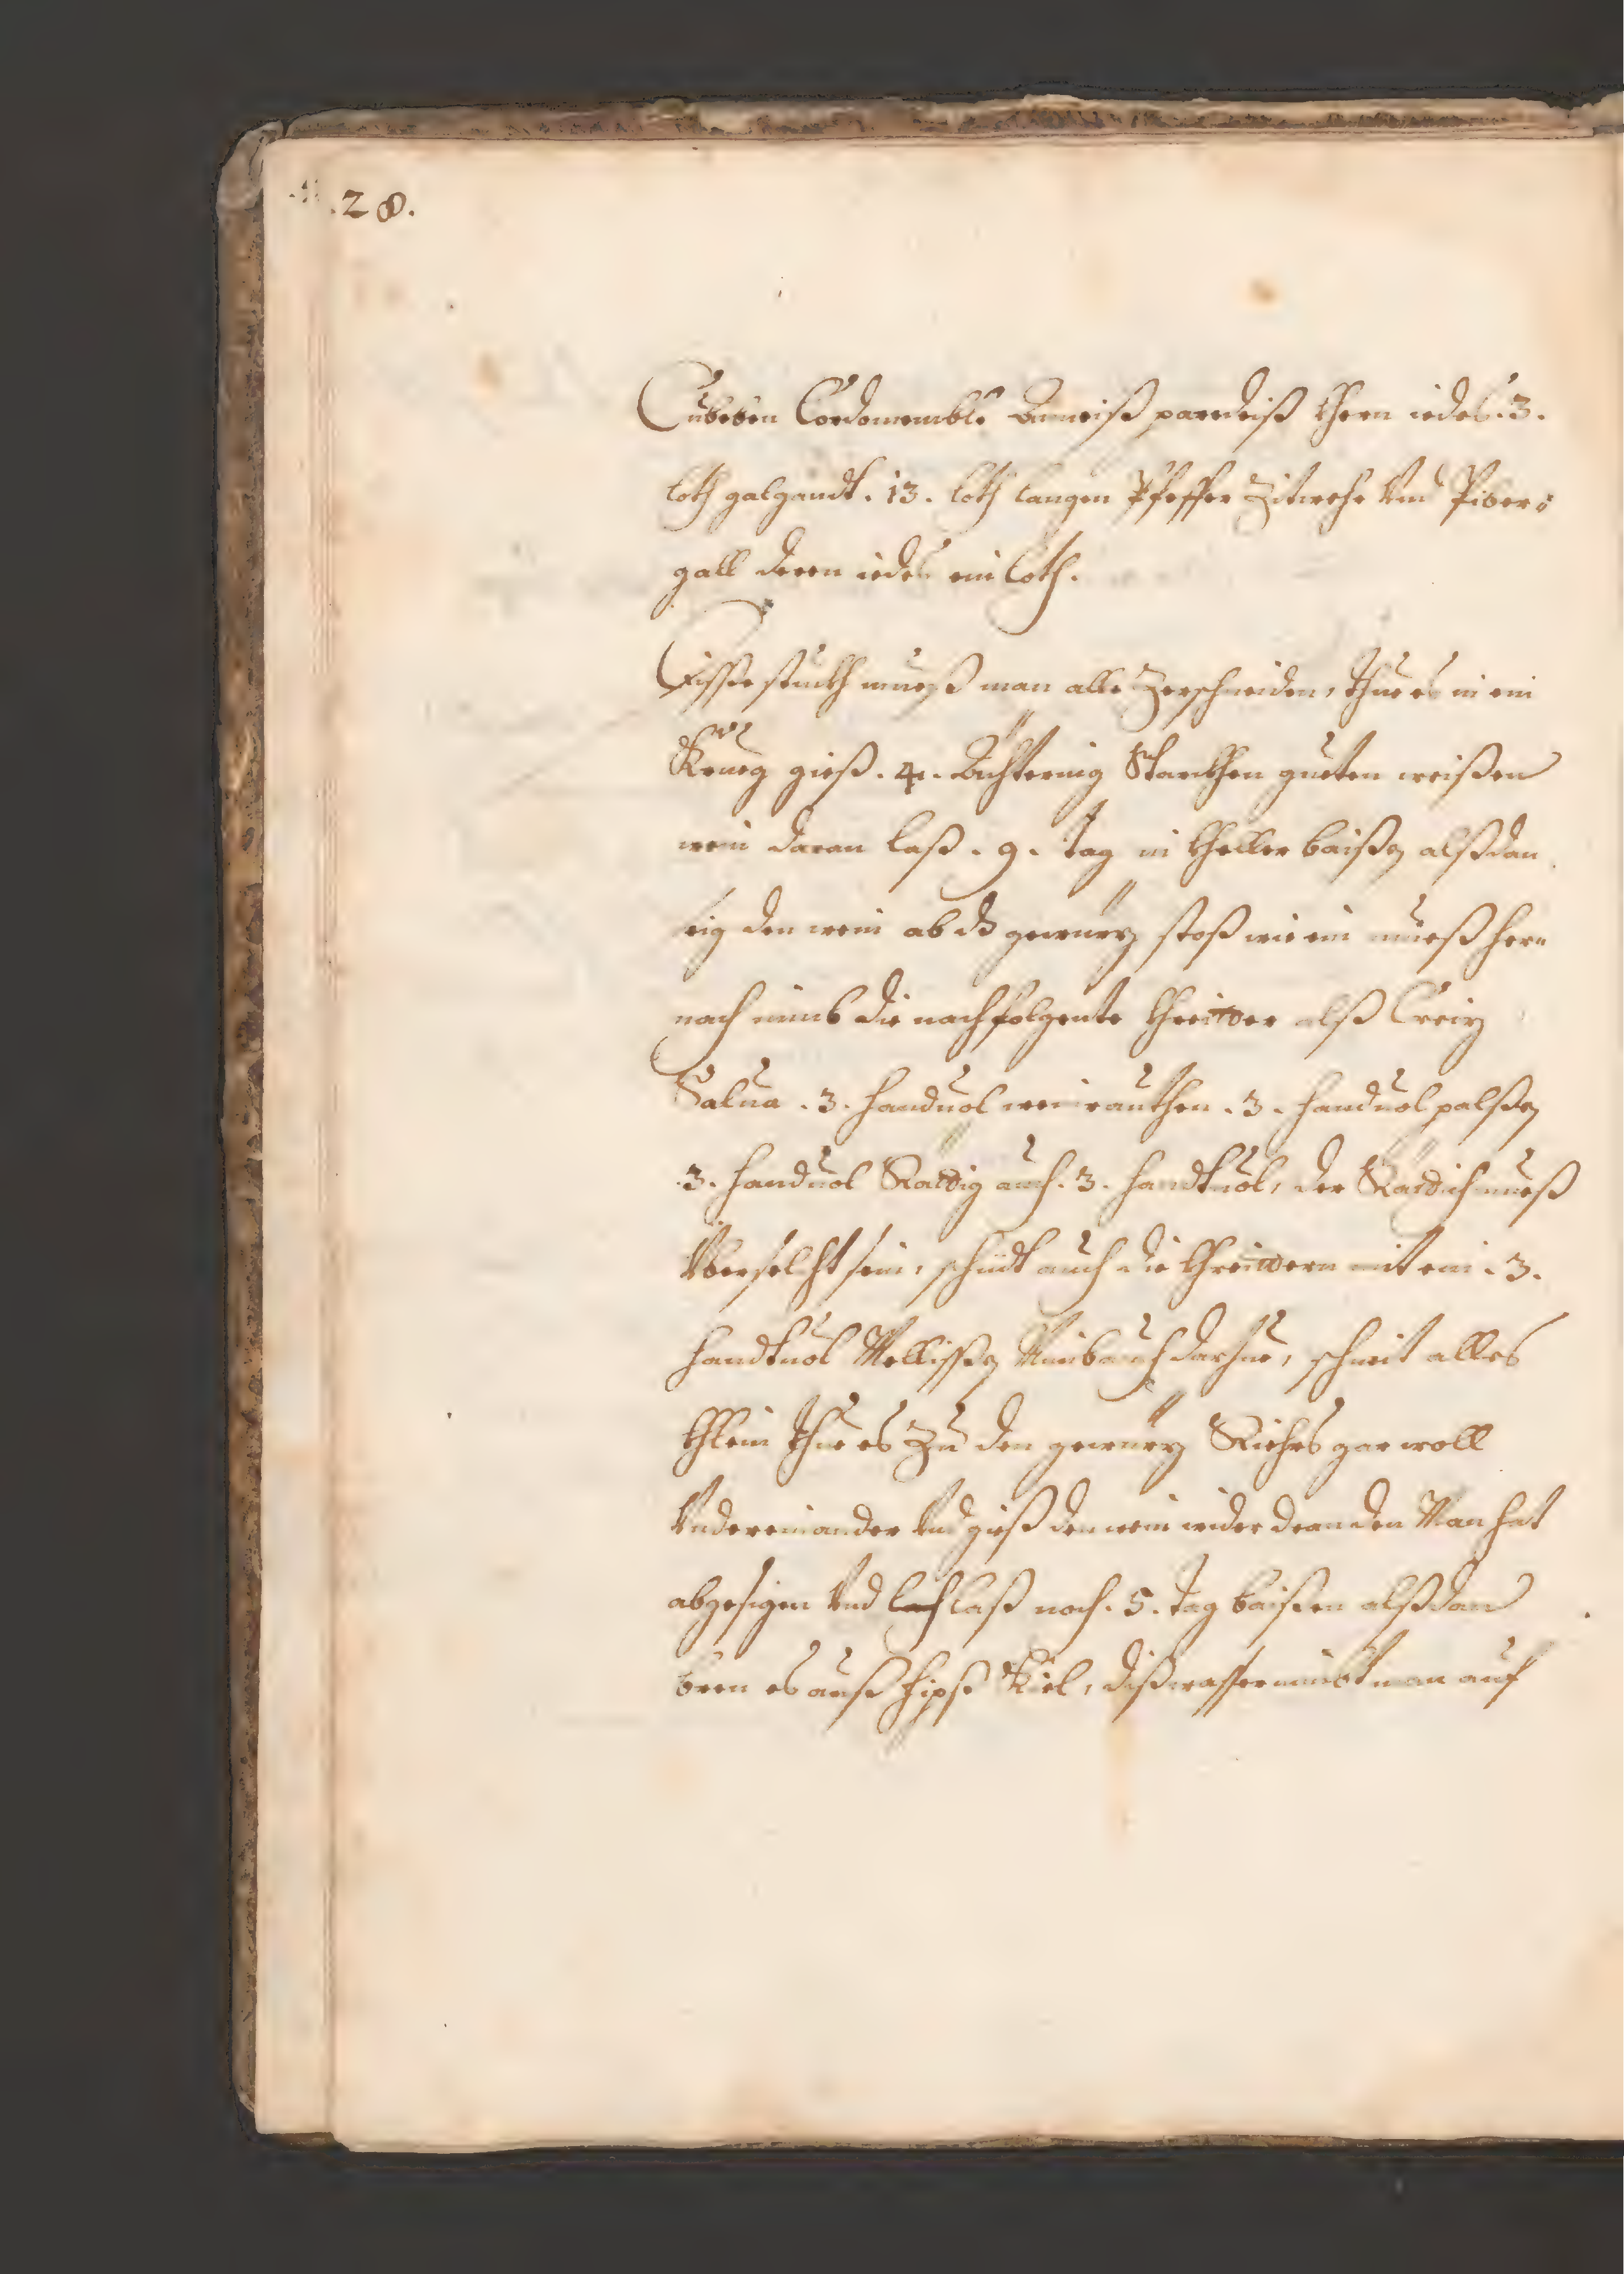 .28.
Cubeben Cordomembli Anneiß paredeiß khern iedes .3.
loth galgandt . 13 . loth langen Pfeffer Zitwehr Vnd Piber=
gall deren iedes ein loth.
Disse stuckh mueß man alle Zerschneiden, thue es in ein
Krueg gieß . 4 . Ächtering Starckhen gueten weißen
wein daran laß . 9 . tag in kheller baißen alßdan
seig den wein ab dz gewürz stoß wie ein mueß her=
nach nimb die nachfolgente khreitter alß Creiz
Salua . 3 . handuol weinrauthen . 3 . handuol palßen
.3. handuol Rättig auch . 3 . handtuol, der Rättich mueß
Yberselcht sein, schüdt auch die khreittern mit ein . 3 .
handtuol Mellissen Nimb auch darzue, schneit alles
khlein thue es Zu den gewürz Riehrs gar woll
Vndereinander Vnd gieß den wein wider dran den Man hat
abgesigen Vnd laß noch . 5 . tag baißen alßdan
bren es auß hipß Kiel, diß wasser nimbt man auf